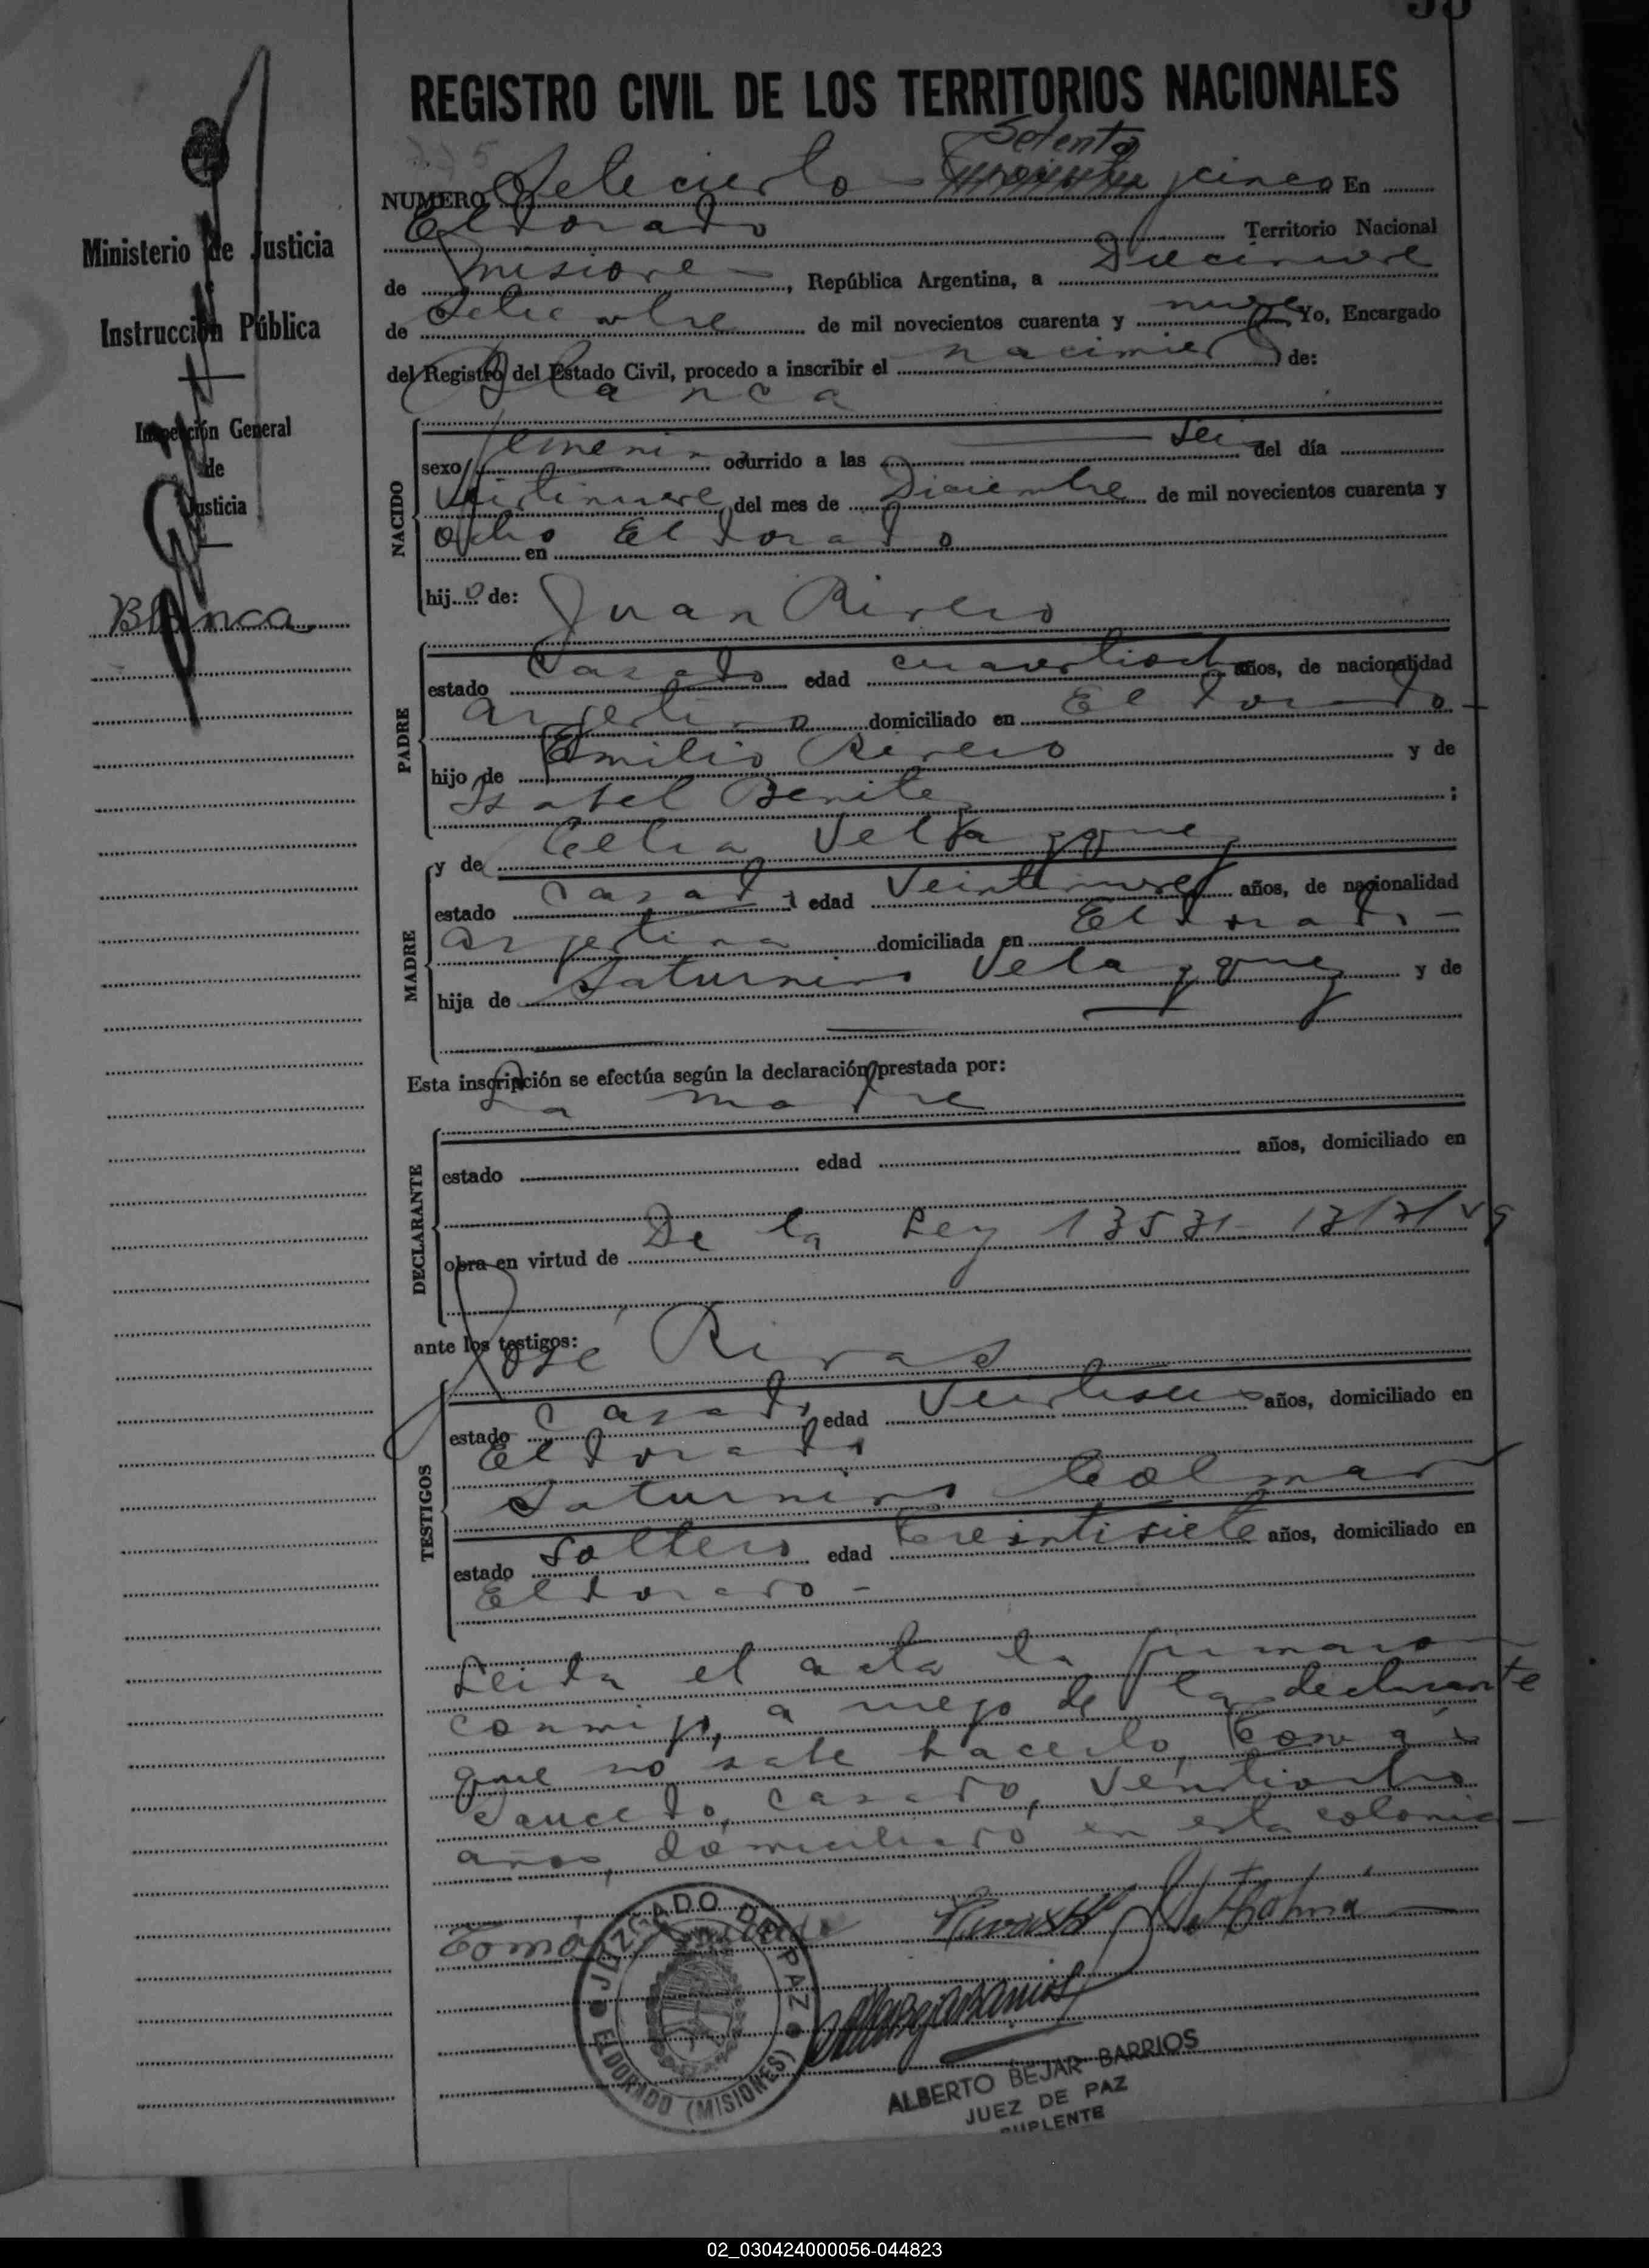 REGISTRO CIVIL DE LOS TERRITORIOS NACIONALES
Setenta
NUMERO Setecientos y cinco En
Eldorado Territorio Nacional
de Misiones, República Argentina, a Diecinueve
de Setiembre de mil novecientos cuarenta y nueve Yo, Encargado
del Registro del Estado Civil, procedo a inscribir el nacimiento de:
Blanca
NACIDO
sexo femenino ocurrido a las seis del día
Veintinueve del mes de Diciembre de mil novecientos cuarenta y
ocho en Eldorado
hij... de: Juan Rivero
PADRE
estado Casado edad años, de nacionalidad
argentina domiciliado en El dorado
hijo de Emilio Rivero y de
Isabel Benitez ;
y de Celia Velazquez
MADRE
estado Casada edad Veintinueve años, de nacionalidad
argentina domiciliada en Eldorado -
hija de Saturnino Velazquez y de
Esta inscripción se efectúa según la declaración prestada por:
La madre
DECLARANTE
estado edad años, domiciliado en
obra en virtud de De la Ley
ante los testigos:
José Rivas
TESTIGOS
estado Casado edad años, domiciliado en
Eldorado
Saturnino Colman
estado Soltero edad treintisiete años, domiciliado en
Eldorado -
Leida el acta la firmaron
conmigo, a ruego de la declarante
que no sabe hacerlo, Tomás
Saucedo, casado, ventiocho
años, domiciliado en esta colonia
Tomás
JUZGADO DE PAZ
ELDORADO (MISIONES)
ALBERTO BEJAR BARRIOS
JUEZ DE PAZ
SUPLENTE
Ministerio de Justicia
Instrucción Pública
Inspección General
de
Justicia
Blanca
02_030424000056-044823